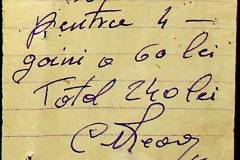 pentru 4 —
găini a 60 lei
Total 240 lei